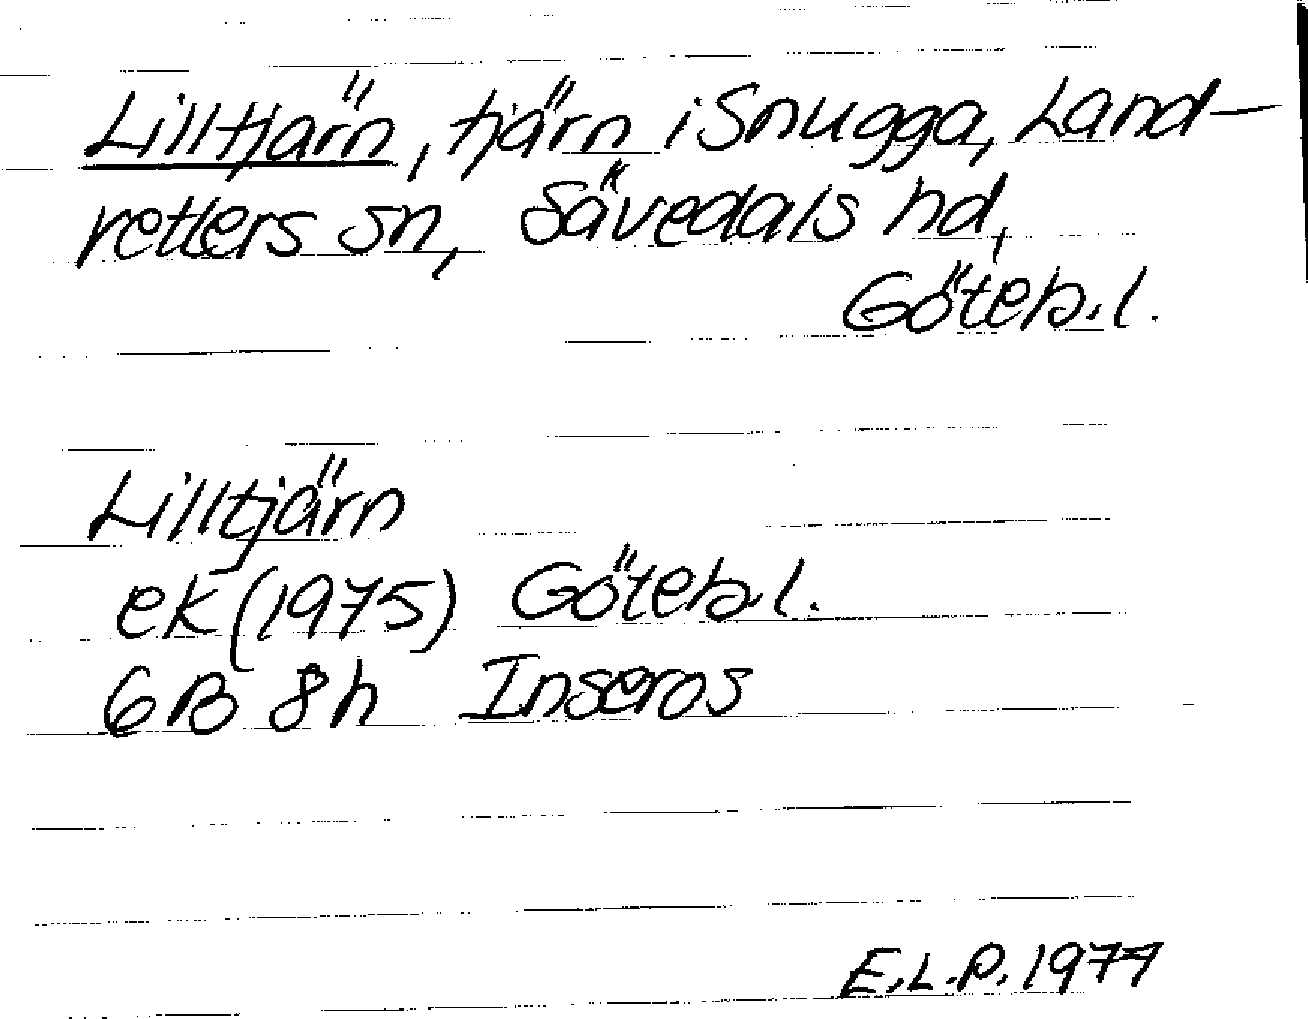 Lilltjärn, tjärn i Snugga, Land-
vetters sn, Sävedals hd,
Göteb.l.
Lilltjärn
ek (1975) Göteb.l.
6B 8h Inseros
E.L.P. 1977